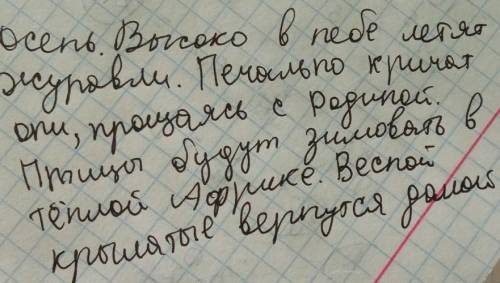 Осень. Высоко в небе летят
журавли. Печально кричат
они, прощаясь с Родиной.
Птицы будут зимовать в
тёплой Африке. Весной
крылатые вернутся домой